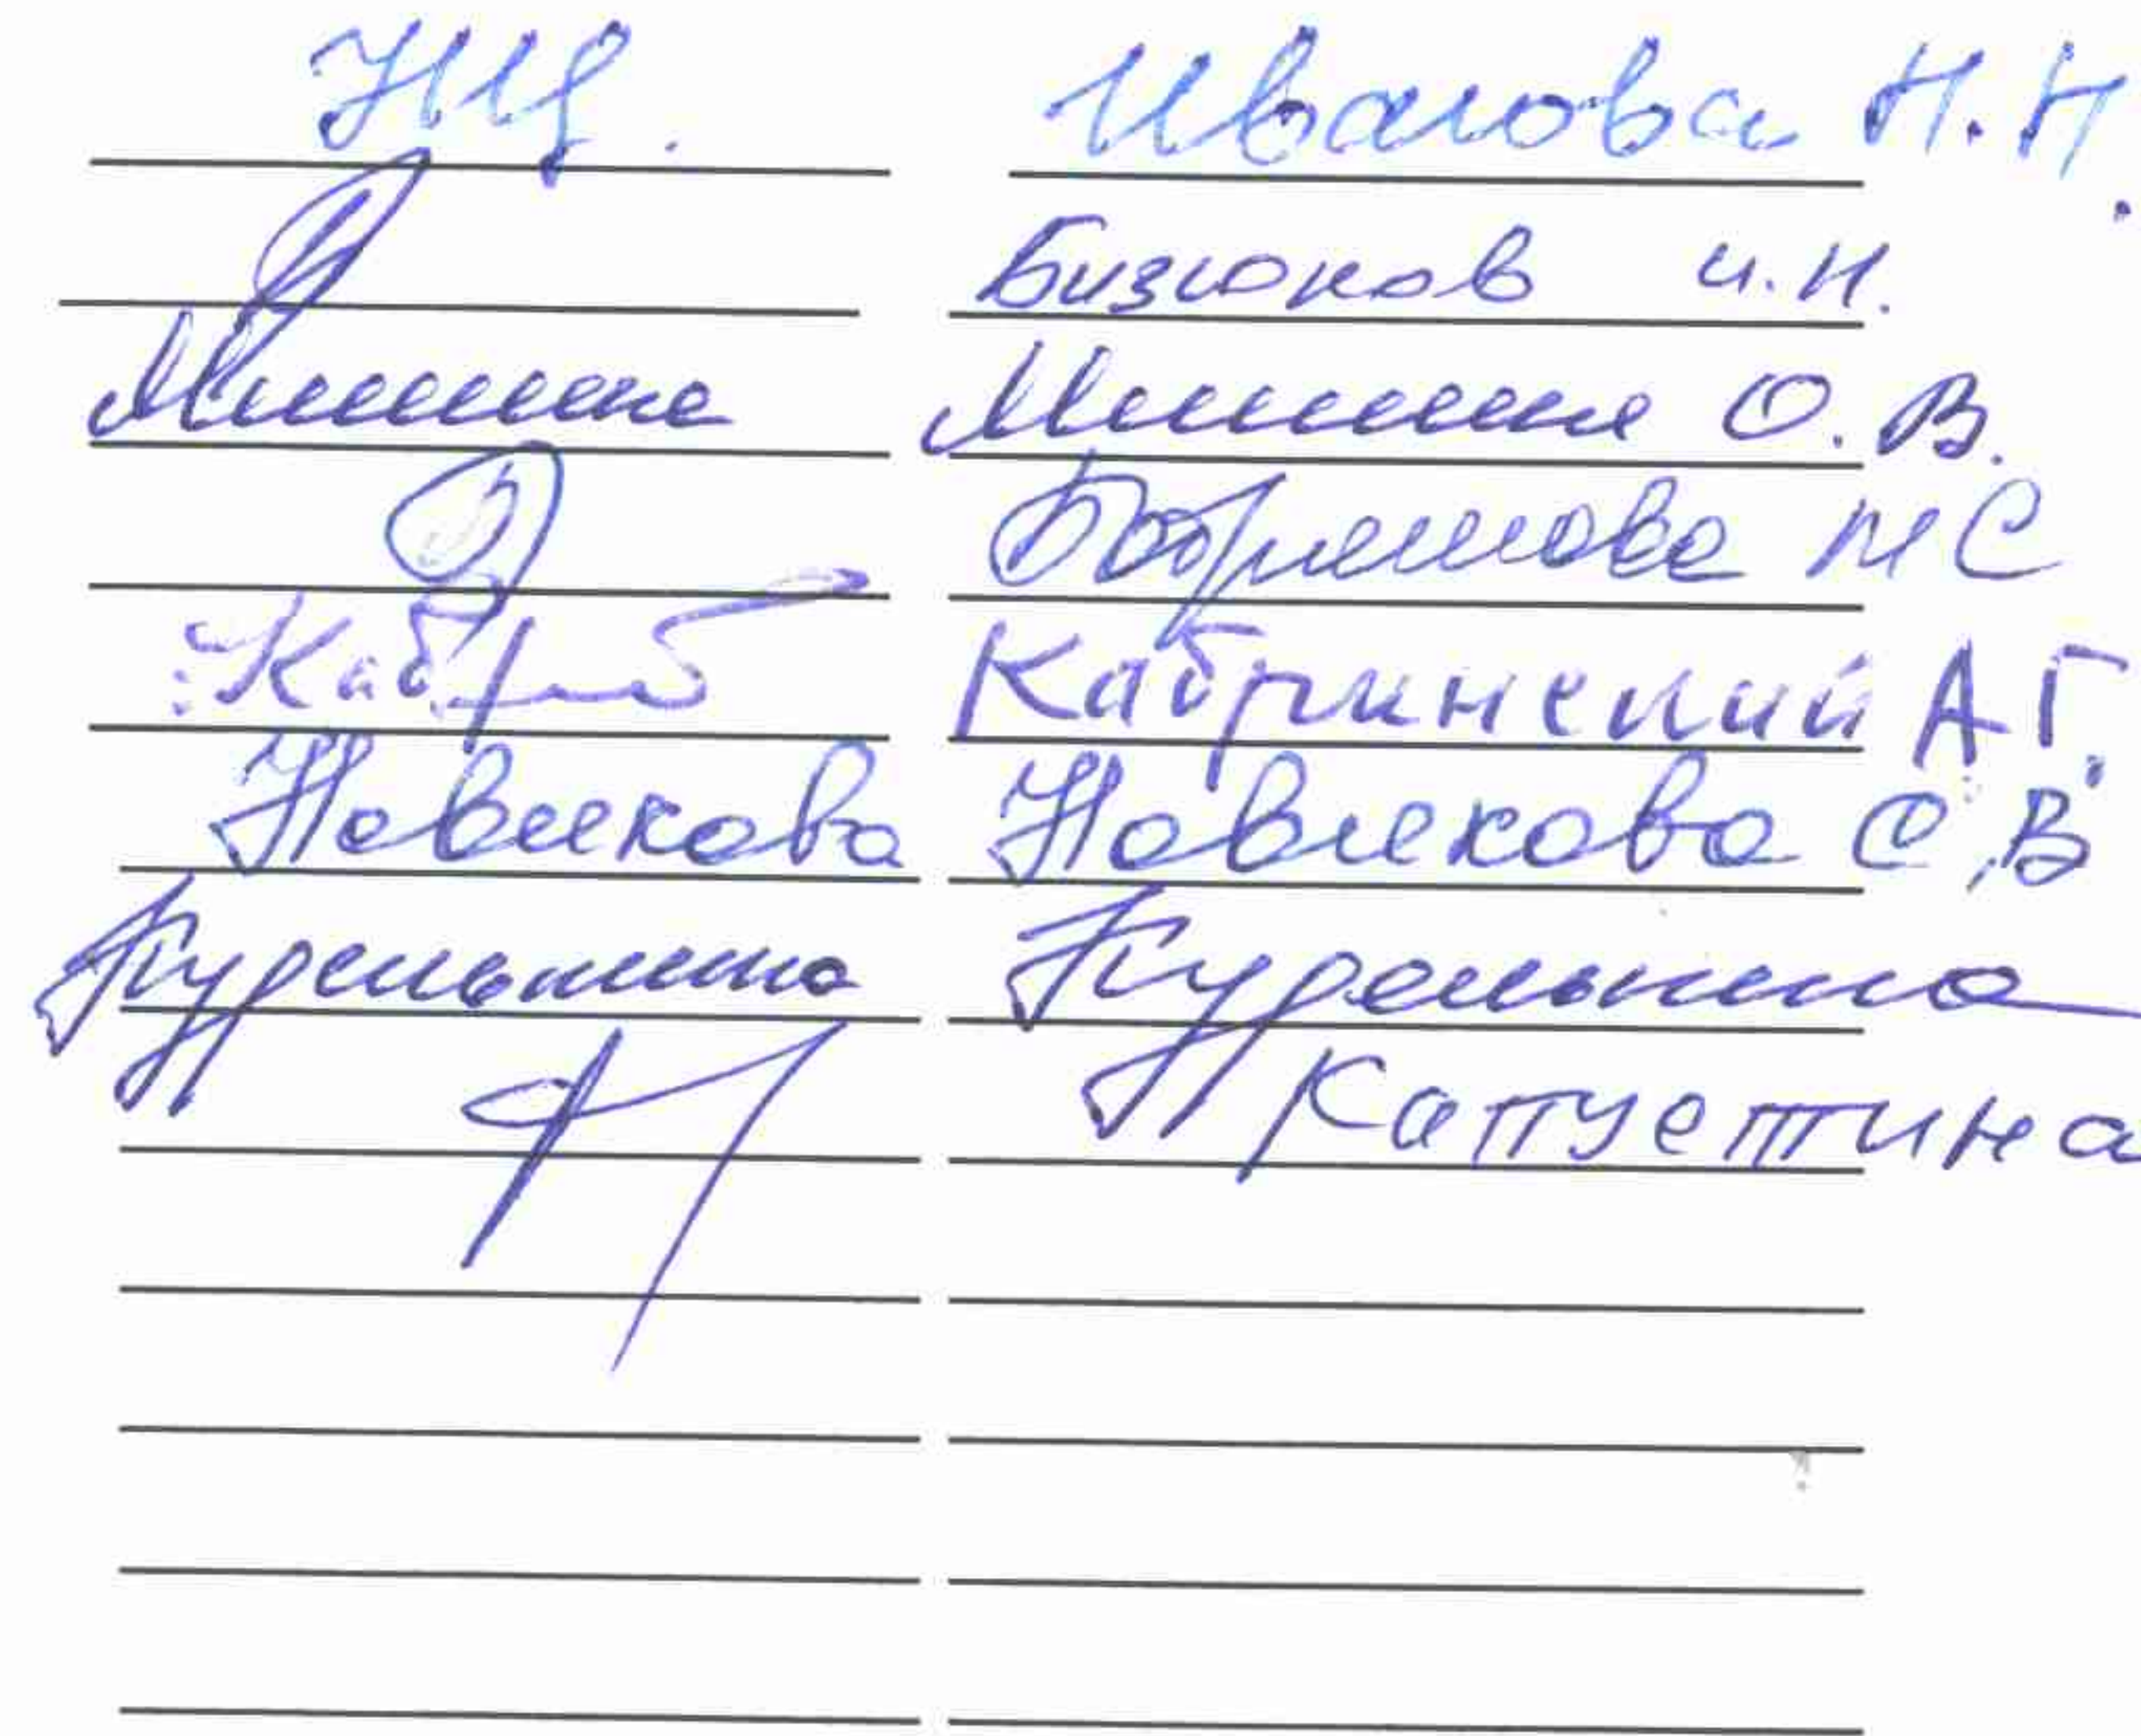 Иванова Н.Н.
Бизюков И.И.
Мишина Мишина О.В.
Бобришова М С
Кабринский А Г.
Новикова Новикова С.В
Курепькина Курепькина
Капустина